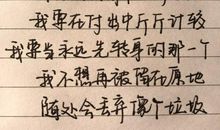 我要在付出中斤斤计较
我要当永远先转身的那一个
我不想再被留在原地
随处会丢弃像个垃圾